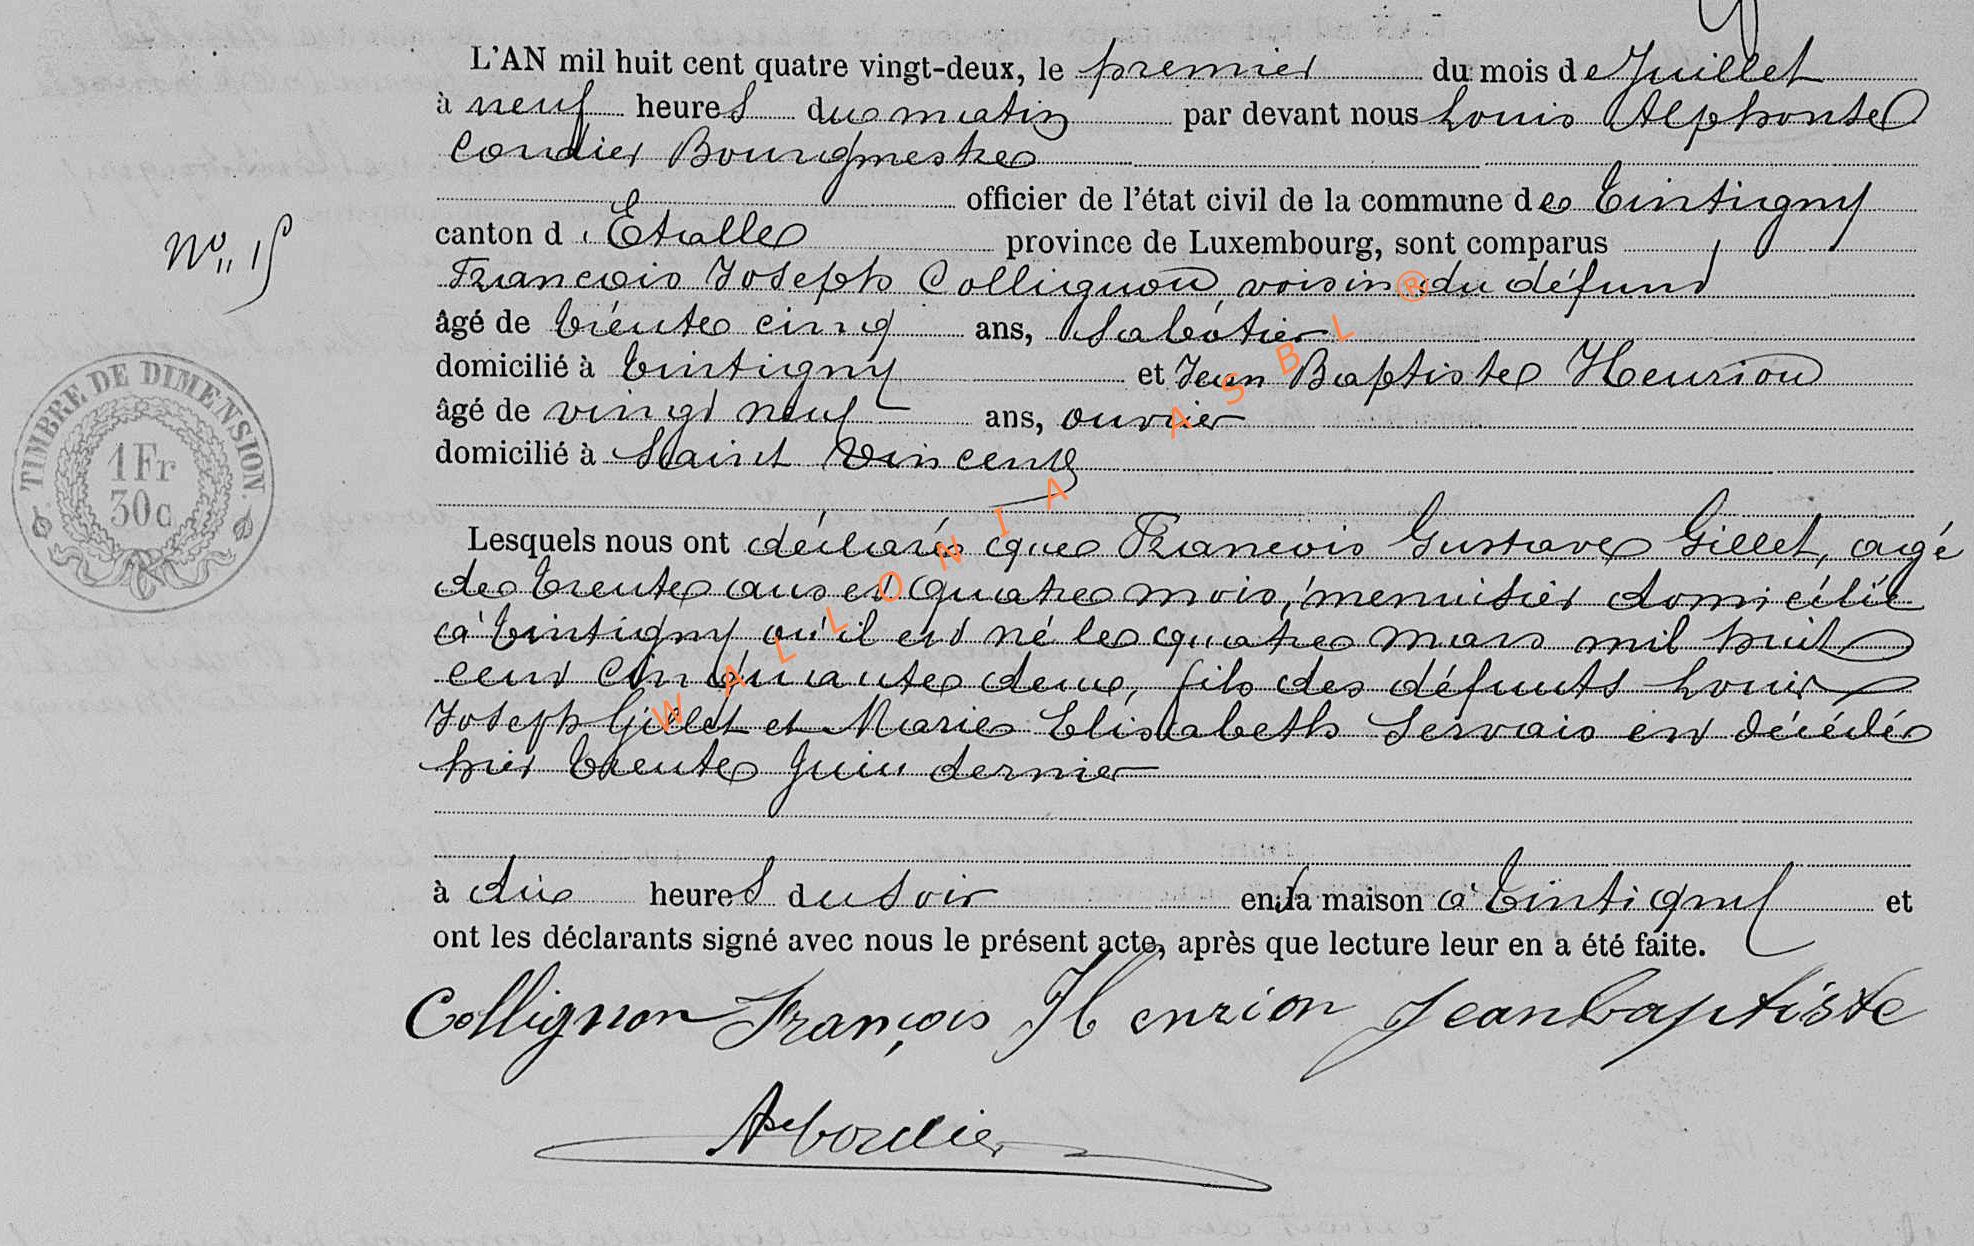 L'AN mil huit cent quatre vingt-deux, le premier du mois de Juillet
à neuf heures du matin par devant nous Louis Alphonse
Cordier Bourgmestre
officier de l'état civil de la commune de Tintigny
canton d'Etalle province de Luxembourg, sont comparus
François Joseph Collignon, voisin du défunt
âgé de trente cinq ans, Sabotier
domicilié à Tintigny et Jean Baptiste Henrion
âgé de vingt neuf ans, ouvrier
domicilié à Saint Vincent
Nº 15
TIMBRE DE DIMENSION.
1Fr
30c
Lesquels nous ont déclaré que François Gustave Gillet, agé
de trente ans et quatre mois, menuisier domicilié
à Tintigny où il est né le quatre mars mil huit
cent cinquante deux, fils des défunts Louis
Joseph Gillet et Marie Elisabeth Servais est décédé
hier trente Juin dernier
à dix heures du soir en sa maison à Tintigny et
ont les déclarants signé avec nous le présent acte, après que lecture leur en a été faite.
Collignon François Henrion Jeanbaptiste
Cordier
WALLONIA ASBL ®